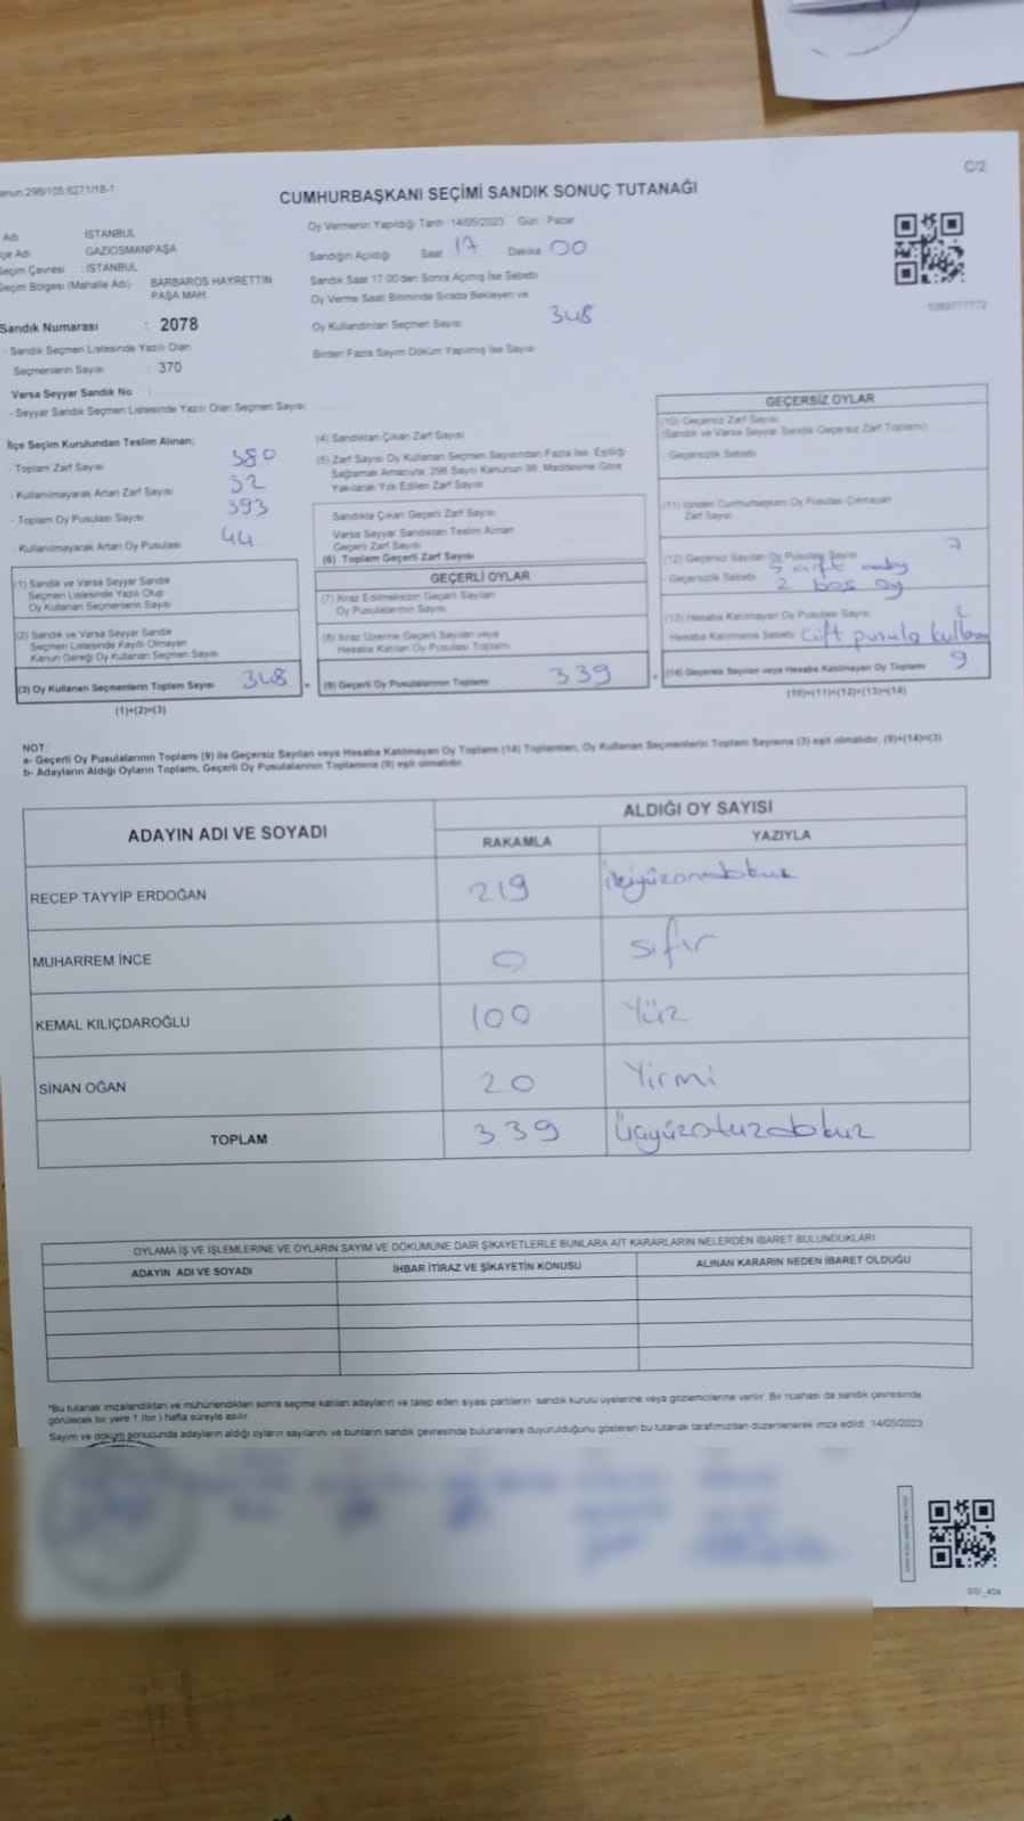 C/2
CUMHURBAŞKANI SEÇİMİ SANDIK SONUÇ TUTANAĞI
Adı İSTANBUL
İlçe Adı GAZİOSMANPAŞA
Seçim Çevresi : İSTANBUL
Seçim Bölgesi (Mahalle Adı) BARBAROS HAYRETTİN
PAŞA MAH.
Sandık Numarası : 2078
- Sandık Seçmen Listesinde Yazılı Olan
Seçmenlerin Sayısı : 370
Varsa Seyyar Sandık No :
- Seyyar Sandık Seçmen Listesinde Yazılı Olan Seçmen Sayısı
Oy Vermenin Yapıldığı Tarih 14/05/2023 Gün Pazar
Sandığın Açıldığı Saat 17 Dakika 00
Sandık Saat 17.00'den Sonra Açılmış İse Sebebi
Oy Verme Saati Bitiminde Sırada Bekleyen ve
Oy Kullandırılan Seçmen Sayısı 348
Birden Fazla Sayım Döküm Yapılmış İse Sayısı
İlçe Seçim Kurulundan Teslim Alınan:
- Toplam Zarf Sayısı 380
- Kullanılmayarak Artan Zarf Sayısı 32
- Toplam Oy Pusulası Sayısı 393
- Kullanılmayarak Artan Oy Pusulası 44
(1) Sandık ve Varsa Seyyar Sandık
Seçmen Listesinde Yazılı Olup
Oy Kullanan Seçmenlerin Sayısı
(2) Sandık ve Varsa Seyyar Sandık
Seçmen Listesinde Kayıtlı Olmayan
Kanun Gereği Oy Kullanan Seçmen Sayısı
(3) Oy Kullanan Seçmenlerin Toplam Sayısı 348
(1)+(2)=(3)
(4) Sandıktan Çıkan Zarf Sayısı
(5) Zarf Sayısı Oy Kullanan Seçmen Sayısından Fazla İse, Eşitliği
Sağlamak Amacıyla, 298 Sayılı Kanunun 98. Maddesine Göre
Yakılarak Yok Edilen Zarf Sayısı
Sandıkta Çıkan Geçerli Zarf Sayısı
Varsa Seyyar Sandıktan Teslim Alınan
Geçerli Zarf Sayısı
(6) Toplam Geçerli Zarf Sayısı
GEÇERLİ OYLAR
(7) İtiraz Edilmeksizin Geçerli Sayılan
Oy Pusulalarının Sayısı
(8) İtiraz Üzerine Geçerli Sayılan veya
Hesaba Katılan Oy Pusulası Toplamı
(9) Geçerli Oy Pusulalarının Toplamı 339
GEÇERSİZ OYLAR
(10) Geçersiz Zarf Sayısı
(Sandık ve Varsa Seyyar Sandık Geçersiz Zarf Toplamı)
Geçersizlik Sebebi
Zarf Sayısı
(12) Geçersiz Sayılan Oy Pusulası Sayısı 7
Geçersizlik Sebebi 5 çift
2 boş oy
(13) Hesaba Katılmayan Oy Pusulası Sayısı 2
Hesaba Katılmama Sebebi Çift pusula
(14) Geçersiz Sayılan veya Hesaba Katılmayan Oy Toplamı 9
(10)+(11)+(12)+(13)=(14)
NOT:
a- Geçerli Oy Pusulalarının Toplamı (9) ile Geçersiz Sayılan veya Hesaba Katılmayan Oy Toplamı (14) Toplamları, Oy Kullanan Seçmenlerin Toplam Sayısına (3) eşit olmalıdır. (9)+(14)=(3)
b- Adayların Aldığı Oyların Toplamı, Geçerli Oy Pusulalarının Toplamına (9) eşit olmalıdır.
ADAYIN ADI VE SOYADI ALDIĞI OY SAYISI
RAKAMLA YAZIYLA
RECEP TAYYİP ERDOĞAN 219 ikiyüzondokuz
MUHARREM İNCE 0 sıfır
KEMAL KILIÇDAROĞLU 100 Yüz
SİNAN OĞAN 20 Yirmi
TOPLAM 339 üçyüzotuzdokuz
OYLAMA İŞ VE İŞLEMLERİNE VE OYLARIN SAYIM VE DÖKÜMÜNE DAİR ŞİKAYETLERLE BUNLARA AİT KARARLARIN NELERDEN İBARET BULUNDUKLARI
ADAYIN ADI VE SOYADI İHBAR İTİRAZ VE ŞİKAYETİN KONUSU ALINAN KARARIN NEDEN İBARET OLDUĞU
*Bu tutanak imzalandıktan ve mühürlendikten sonra seçime katılan adayların ve talep eden siyasi partilerin sandık kurulu üyelerine veya gözlemcilerine verilir. Bir nüshası da sandık çevresinde
görülecek bir yere 1 (bir) hafta süreyle asılır.
Sayım ve döküm sonucunda adayların aldığı oyların sayılarını ve bunların sandık çevresinde bulunanlara duyurulduğunu gösteren bu tutanak tarafımızdan düzenlenerek imza edildi. 14/05/2023